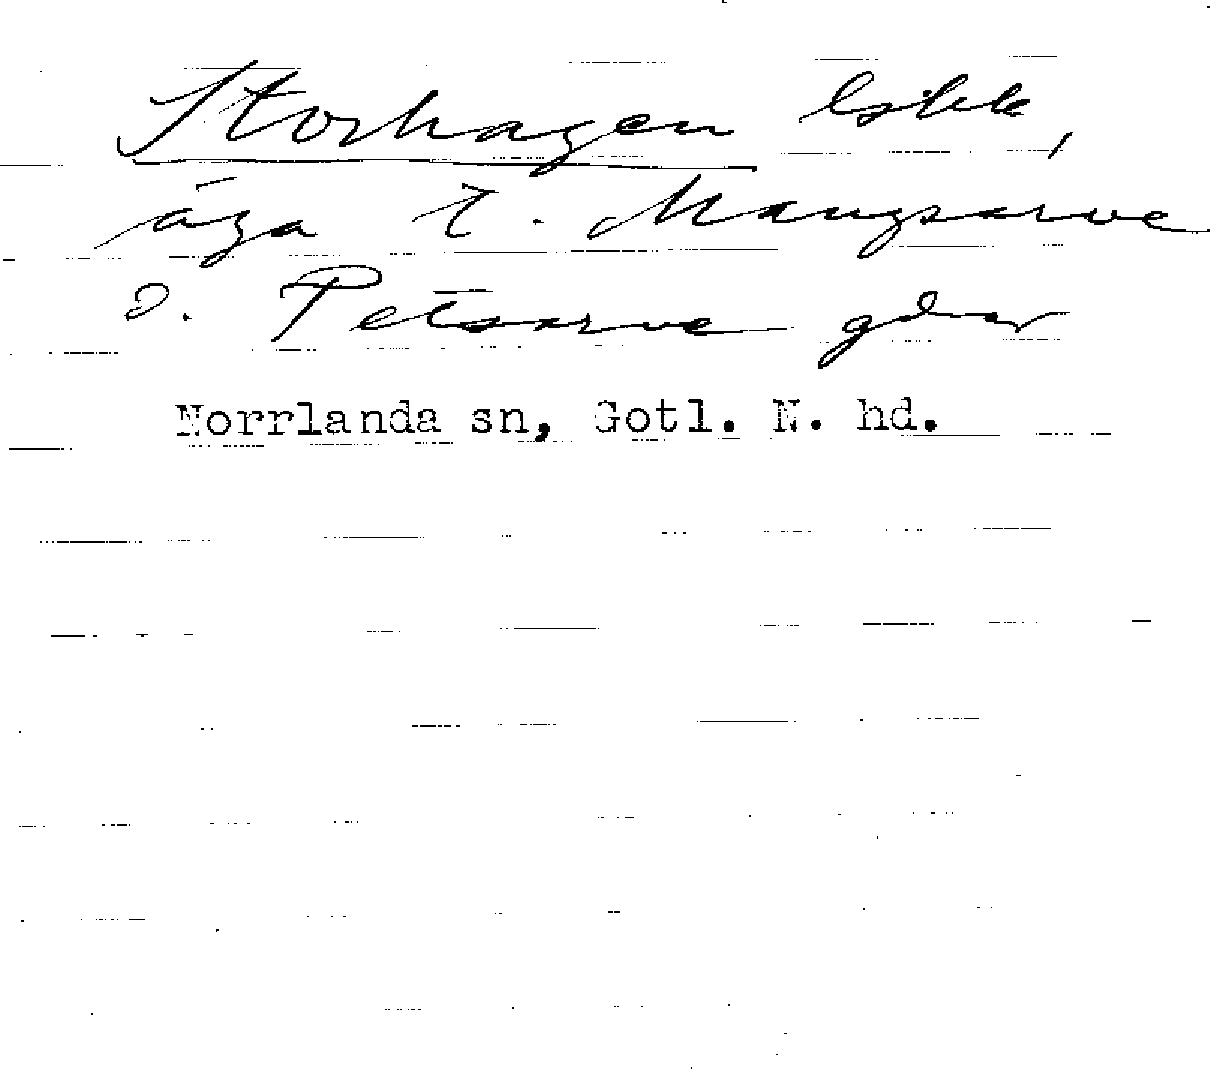 Storhagen bskk,
äga t. Mangsarve
o. Petsarve gdar
Norrlanda sn, Gotl. N. hd.